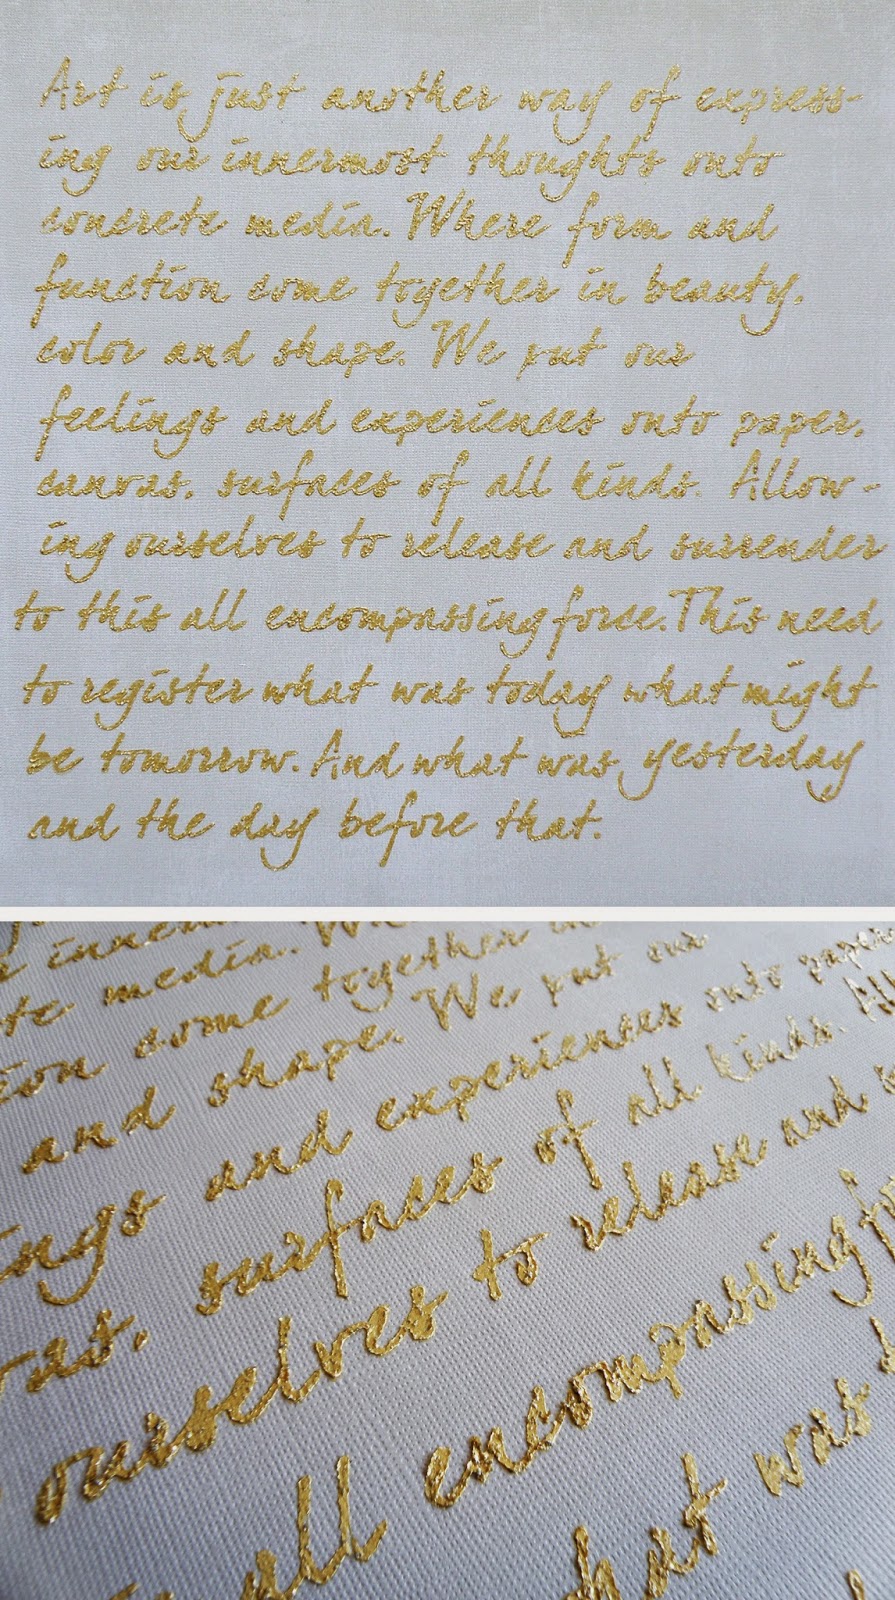 Art is just another way of express-
ing our innermost thoughts onto
concrete media. Where form and
function come together in beauty,
color and shape. We put our
feelings and experiences onto paper,
canvas, surfaces of all kinds. Allow-
ing ourselves to release and surrender
to this all encompassing force. This need
to register what was today what might
be tomorrow. And what was yesterday
and the day before that.
media. W
come together in
and shape. We put our
and experiences onto paper
surfaces of all kinds. All
ourselves to release and
all encompassing
what was